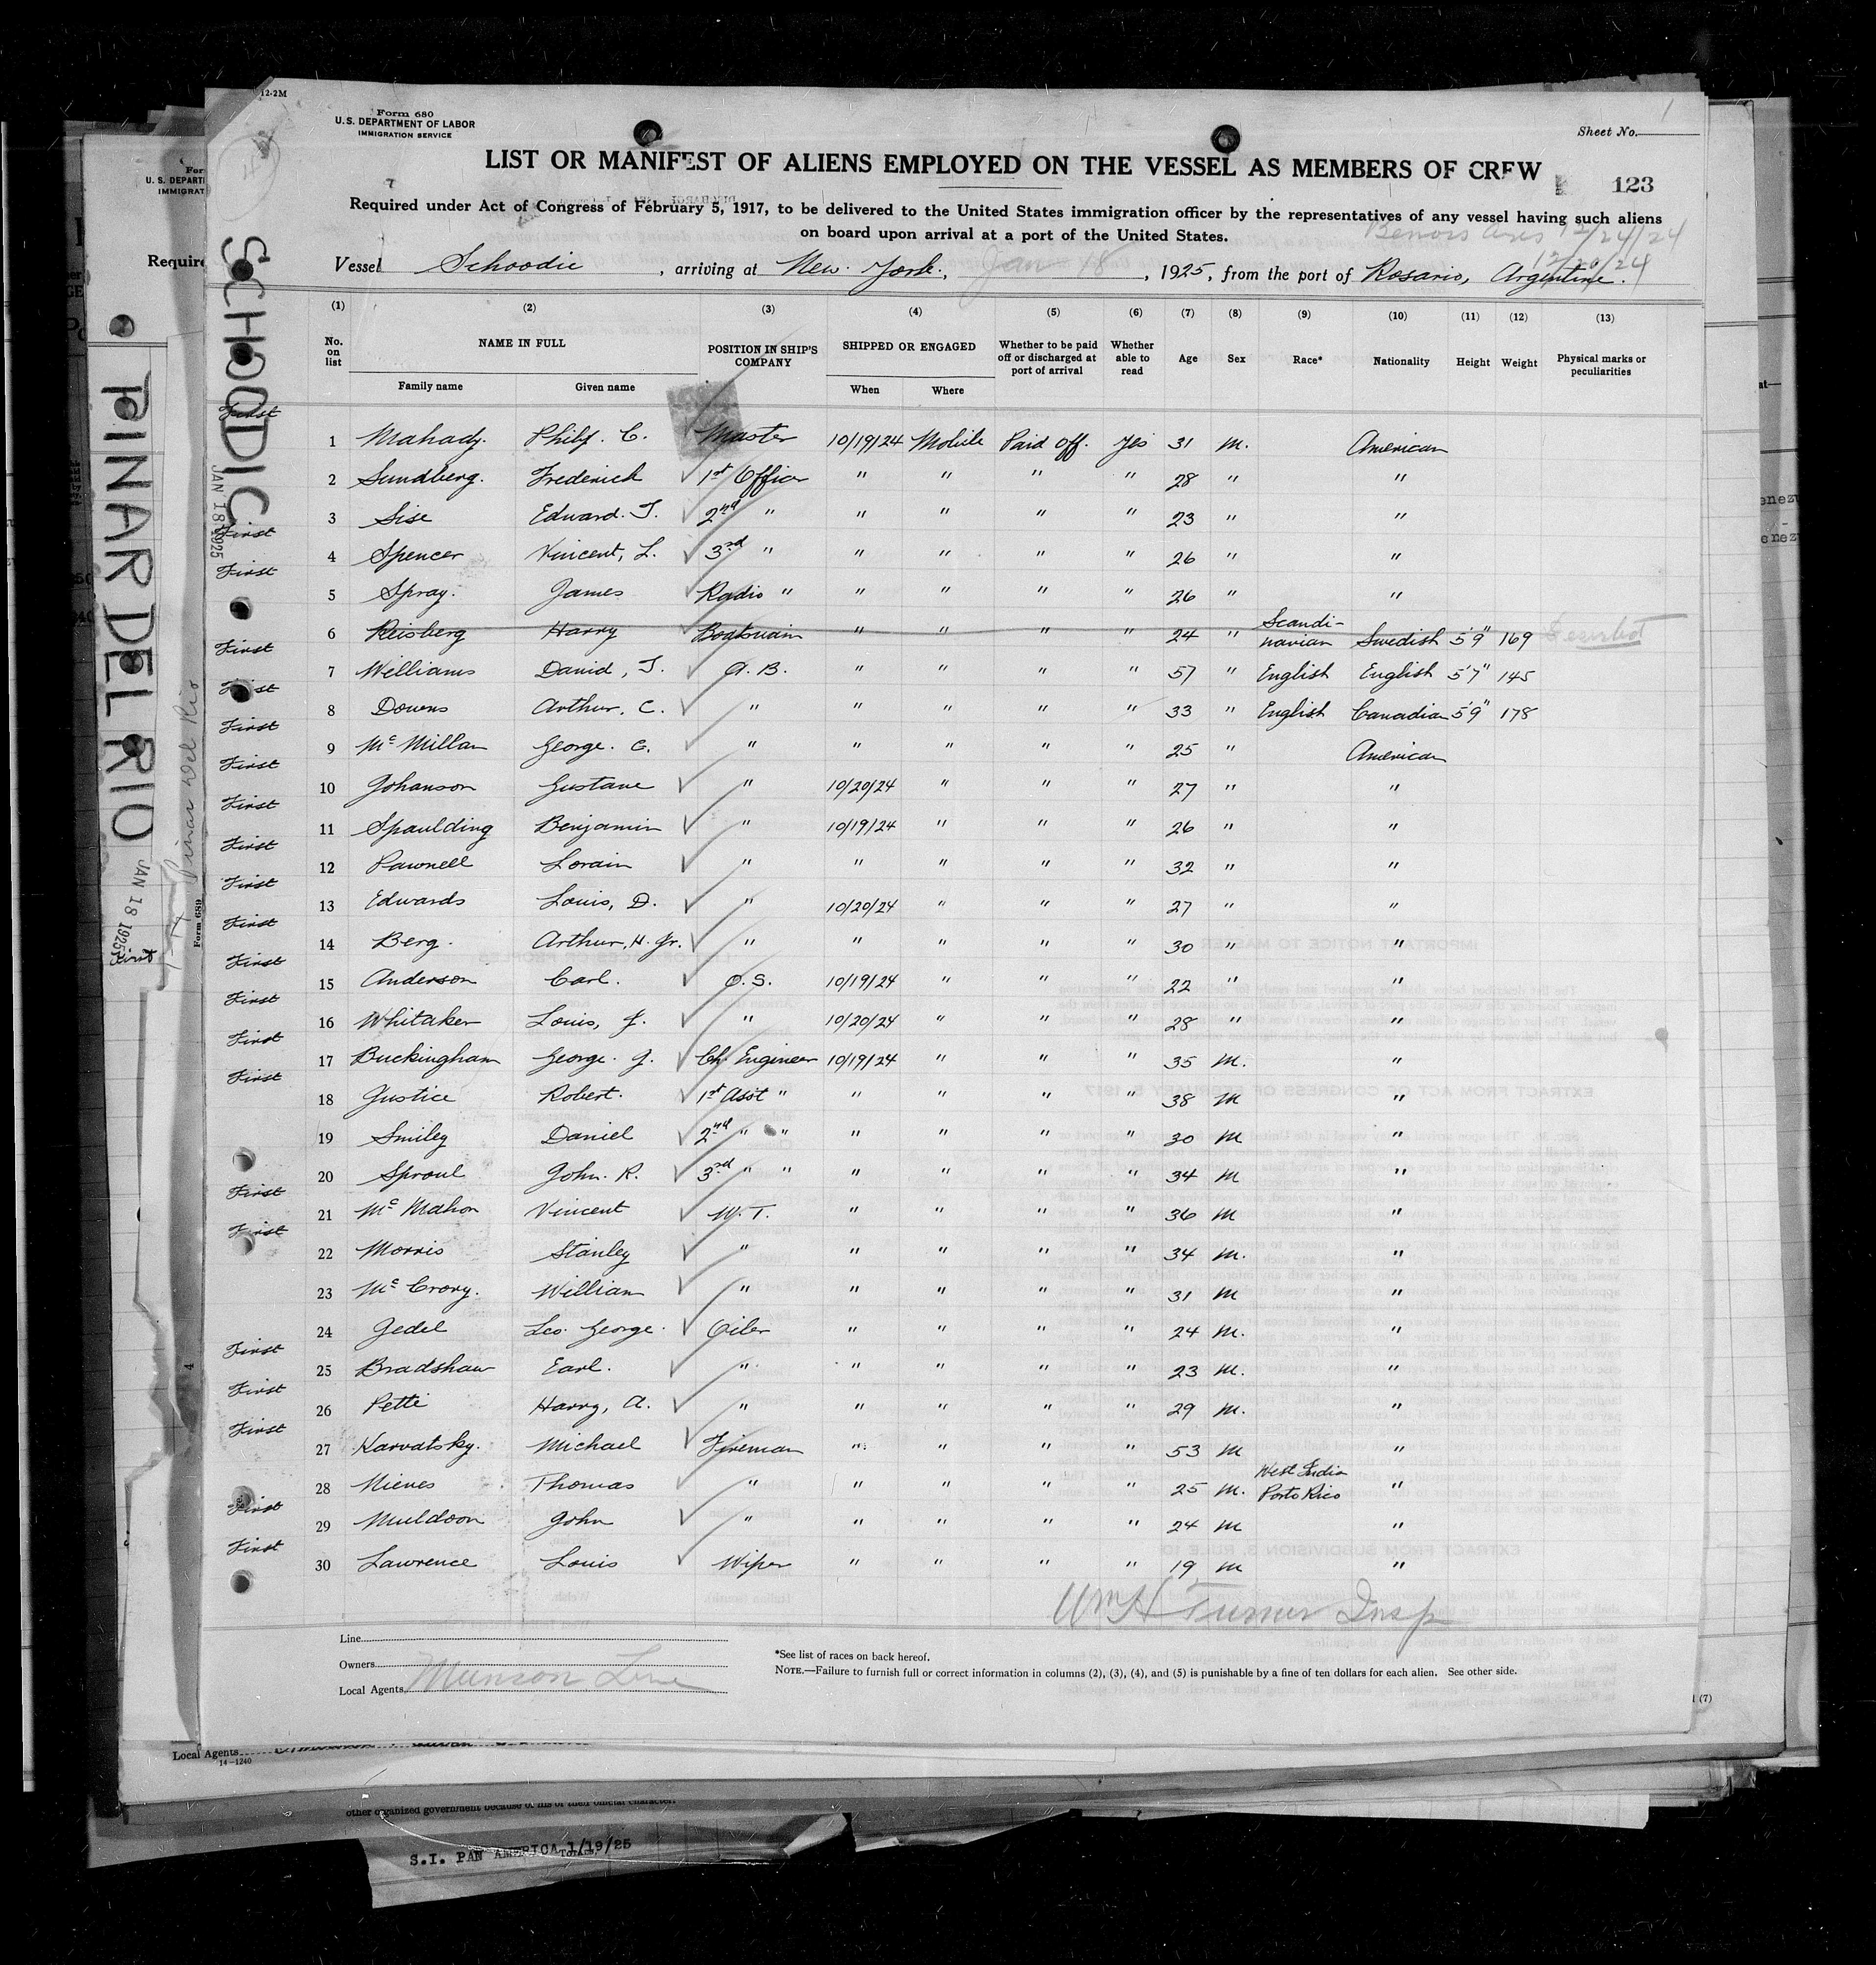 12-2M
Form 680
U.S. DEPARTMENT OF LABOR
IMMIGRATION SERVICE
Sheet No. 1
LIST OR MANIFEST OF ALIENS EMPLOYED ON THE VESSEL AS MEMBERS OF CREW
123
Required under Act of Congress of February 5, 1917, to be delivered to the United States immigration officer by the representatives of any vessel having such aliens
on board upon arrival at a port of the United States.
12/24/24
12/20/24
Vessel Schoodic, arriving at New York, Jan 18, 1925, from the port of Rosario, Argentine.
(1) (2) (3) (4) (5) (6) (7) (8) (9) (10) (11) (12) (13)
No. on list NAME IN FULL POSITION IN SHIP'S COMPANY SHIPPED OR ENGAGED Whether to be paid off or discharged at port of arrival Whether able to read Age Sex Race* Nationality Height Weight Physical marks or peculiarities
Family name Given name When Where
1 Mahady. Philp. C. Master 10/19/24 Mobile Paid Off. Yes 31 m. American
2 Sundberg. Frederick 1st Officer " " " " 28 " "
3 Sise Edward. T. 2nd " " " " " 23 " "
4 Spencer Vincent, L. 3rd " " " " " 26 " "
5 Spray. James Radio " " " " " 26 " "
6 Reisberg Harry Boatswain " " " " 24 " Scandi-navian Swedish 5'9" 169
7 Williams David, T. A.B. " " " " 57 " English English 5'7" 145
8 Downs Arthur. C. " " " " " 33 " English Canadian 5'9" 178
9 Mc Millan George. C. " " " " " 25 " American
10 Johanson Gustave " 10/20/24 " " " 27 " "
11 Spaulding Benjamin " 10/19/24 " " " 26 " "
12 Pawnell Lorain " " " " " 32 " "
13 Edwards Louis, D. " 10/20/24 " " " 27 " "
14 Berg. Arthur, H. Jr. " " " " " 30 " "
15 Anderson Carl. O.S. 10/19/24 " " " 22 " "
16 Whitaker Louis, J. " 10/20/24 " " " 28 " "
17 Buckingham George. J. Ch. Engineer 10/19/24 " " " 35 m. "
18 Justice Robert. 1st Asst " " " " " 38 m "
19 Smiley Daniel 2nd " " " " " " 30 m "
20 Sproul John. R. 3rd " " " " " " 34 m "
21 Mc Mahon Vincent W.T. " " " " 36 m "
22 Morris Stanley " " " " " 34 m. "
23 Mc Crory. William " " " " " 31 m "
24 Gedel Leo. George. Oiler " " " " 24 m. "
25 Bradshaw Earl. " " " " " 23 m. "
26 Petti Harry, A. " " " " " 29 m. "
27 Karvatsky. Michael Fireman " " " " 53 m "
28 Nieves Thomas " " " " " 25 m. West India Porto Rico "
29 Muldoon John " " " " " 24 m "
30 Lawrence Louis Wiper " " " " 19 m "
Wm H Turner Insp
Line
Owners
Local Agents Munson Line
*See list of races on back hereof.
NOTE.—Failure to furnish full or correct information in columns (2), (3), (4), and (5) is punishable by a fine of ten dollars for each alien. See other side.
SCHOODIC
JAN 18 1925
First
First
First
First
First
First
First
First
First
First
First
First
First
First
First
First
First
First
First
First
First
First
First
PINAR DEL RIO
JAN 18 1925
First
Pinar Del Rio
Form 689
Local Agents
14-1240
(7)
other organized government because of his or their official character.
S.I. PAN AMERICA 1/19/25